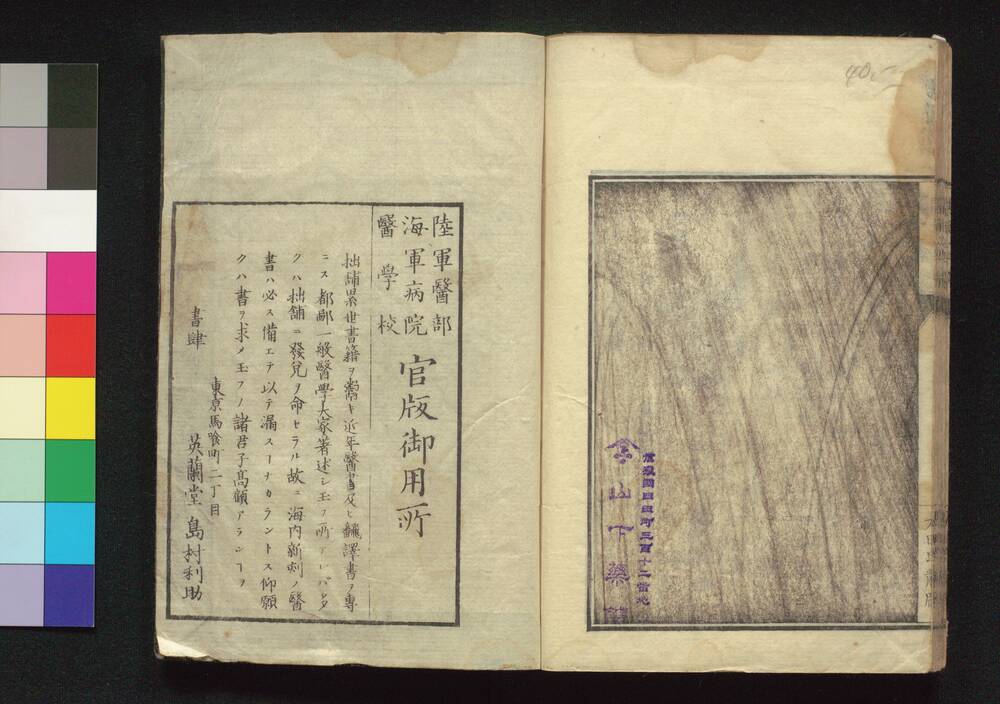 40,-
山下藥舖
陸軍醫部
海軍病院
醫學校
官版御用所
拙舗累世書籍ヲ鬻キ近年醫書及ヒ飜譯書ヲ專
ニス都鄙一般醫學大家著述シ玉フ所アレバ多
クハ拙舗ニ發兌ヲ命セラル故ニ海内新刻ノ醫
書ハ必ス備エテ以テ漏スーナカラントス仰願
クハ書ヲ求メ玉フノ諸君子高顧アランーヲ
東京馬喰町二丁目
書肆 英蘭堂 島村利助